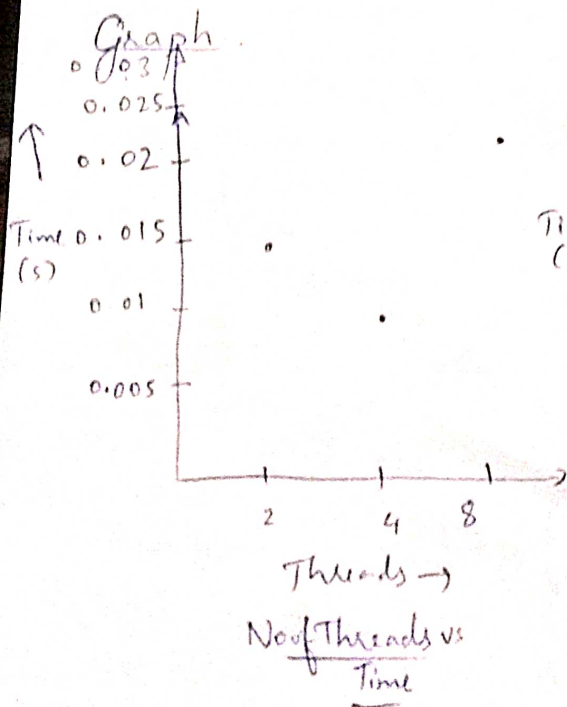 Graph
0.03
0.025
0.02
Time 0.015
(s)
Ti
(
0.01
0.005
2 4 8
Threads →
No of Threads vs
Time